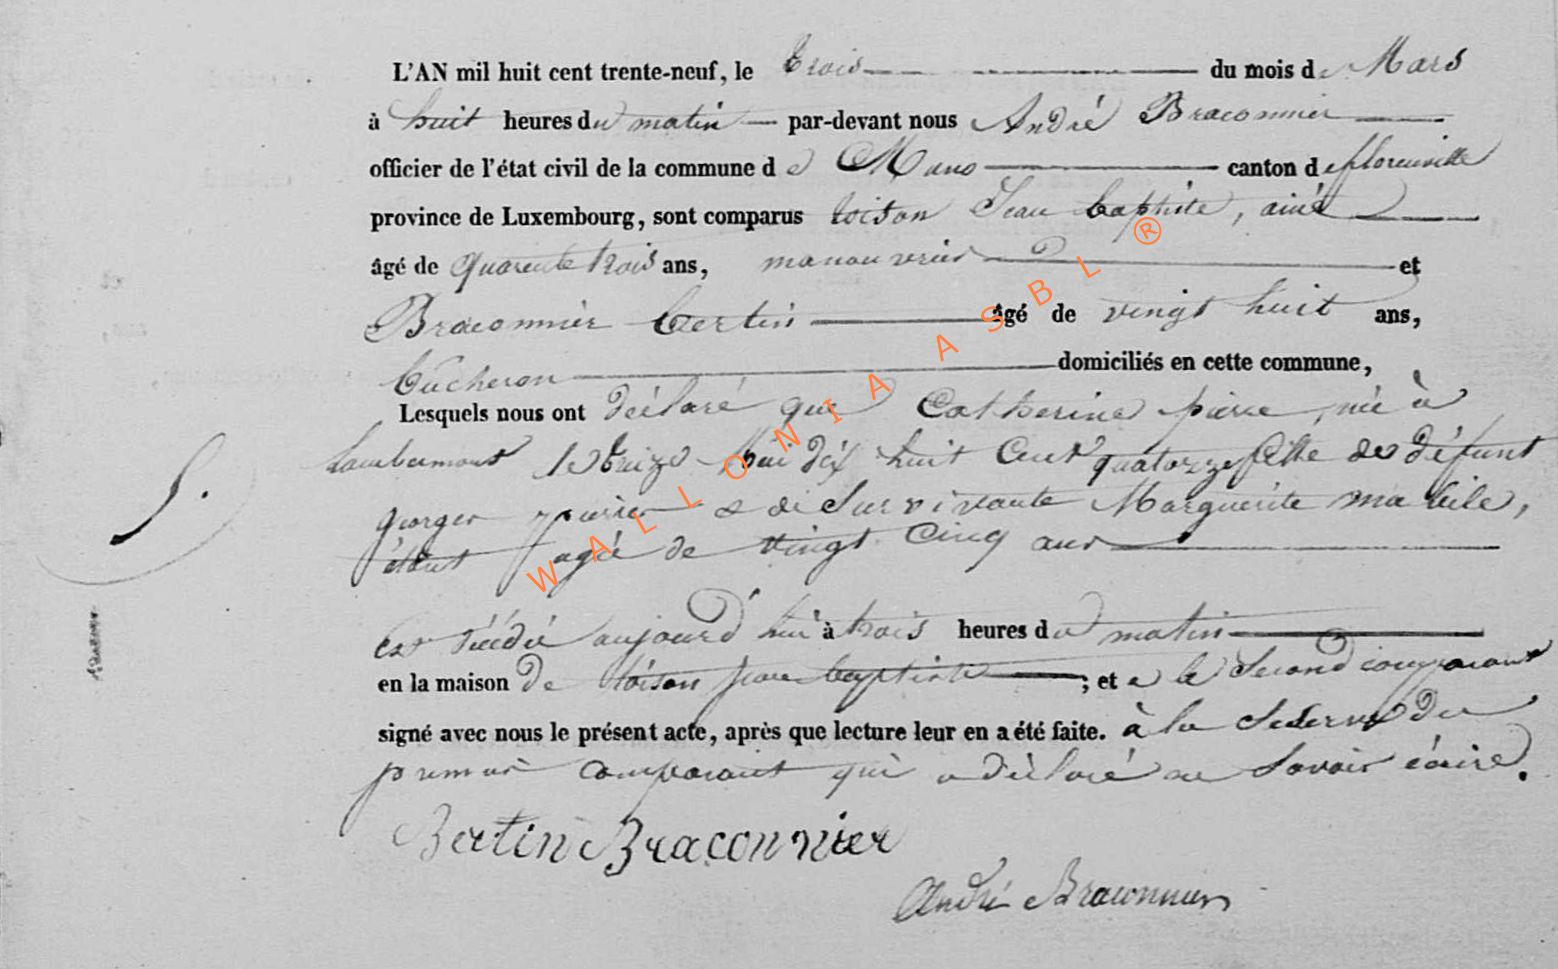 L'AN mil huit cent trente-neuf, le trois du mois de Mars
à huit heures du matin par-devant nous André Braconnier
officier de l'état civil de la commune de Muno canton de florenville
province de Luxembourg, sont comparus toison Jean baptiste, ainé
âgé de quarente trois ans, manouvrier et
Braconnier Bertin âgé de vingt huit ans,
bucheron domiciliés en cette commune,
Lesquels nous ont déclaré que Catherine pierre, née à
Lambermont le treize Mai dix huit Cent quatorze fille de défunt
georges pierre & de Survivante Marguerite mabile,
étant agée de vingt Cinq ans
Est décédé aujourd'hui à trois heures du matin
en la maison de toison jean baptiste ; et a le Second comparant
signé avec nous le présent acte, après que lecture leur en a été faite. à la du
premier comparant qui a déclaré ne Savoir écrire.
Bertin Braconnier
André Braconnier
5.
WALLONIA ASBL ®